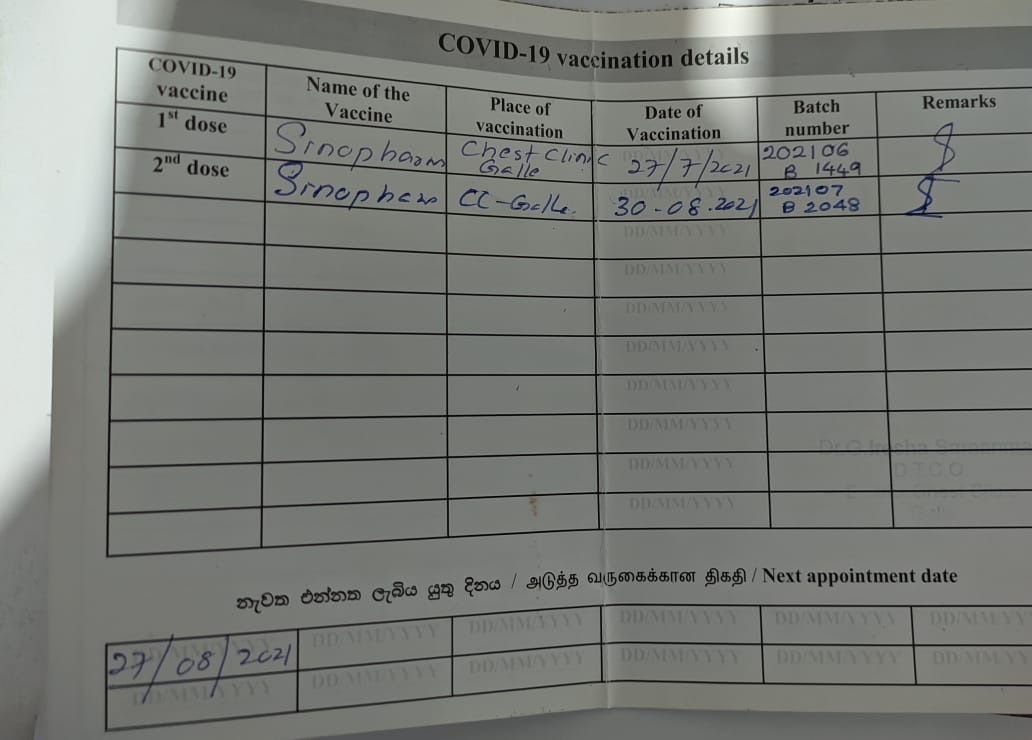 COVID-19 vaccination details
COVID-19 vaccine | Name of the Vaccine | Place of vaccination | Date of Vaccination | Batch number | Remarks
1st dose | Sinopharm | Chest Clinic Galle | 27/7/2021 | 202106 B 1449
2nd dose | Sinopharm | CC-Galle. | 30-08.2021 | 202107 B 2048
DD/MM/YYYY
DD/MM/YYYY
DD/MM/YYYY
DD/MM/YYYY
DD/MM/YYYY
DD/MM/YYYY
DD/MM/YYYY
DD/MM/YYYY
Dr.G.
D.T.C.O
Chest Clinic
Galle
නැවත එන්නත ලැබිය යුතු දිනය / அடுத்த வருகைக்கான திகதி / Next appointment date
27/08/2021 | DD/MM/YYYY | DD/MM/YYYY | DD/MM/YYYY | DD/MM/YYYY | DD/MM/YYYY
DD/MM/YYYY | DD/MM/YYYY | DD/MM/YYYY | DD/MM/YYYY | DD/MM/YYYY | DD/MM/YY